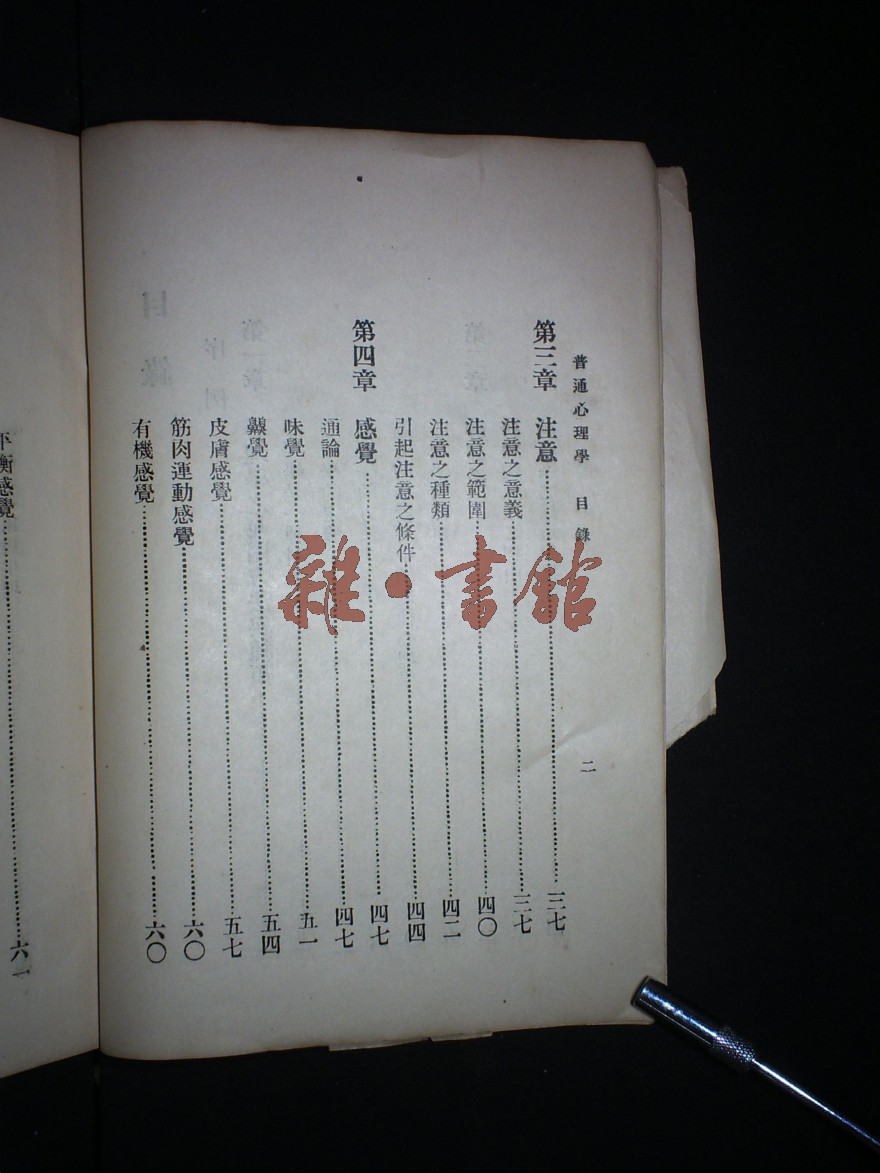 普通心理學 目錄 二
第三章 注意……三七
注意之意義……三七
注意之範圍……四〇
注意之種類……四二
引起注意之條件……四四
第四章 感覺……四七
通論……四七
味覺……五一
齅覺……五四
皮膚感覺……五七
筋肉運動感覺……六〇
有機感覺……六〇
平衡感覺……六一
雜·書館